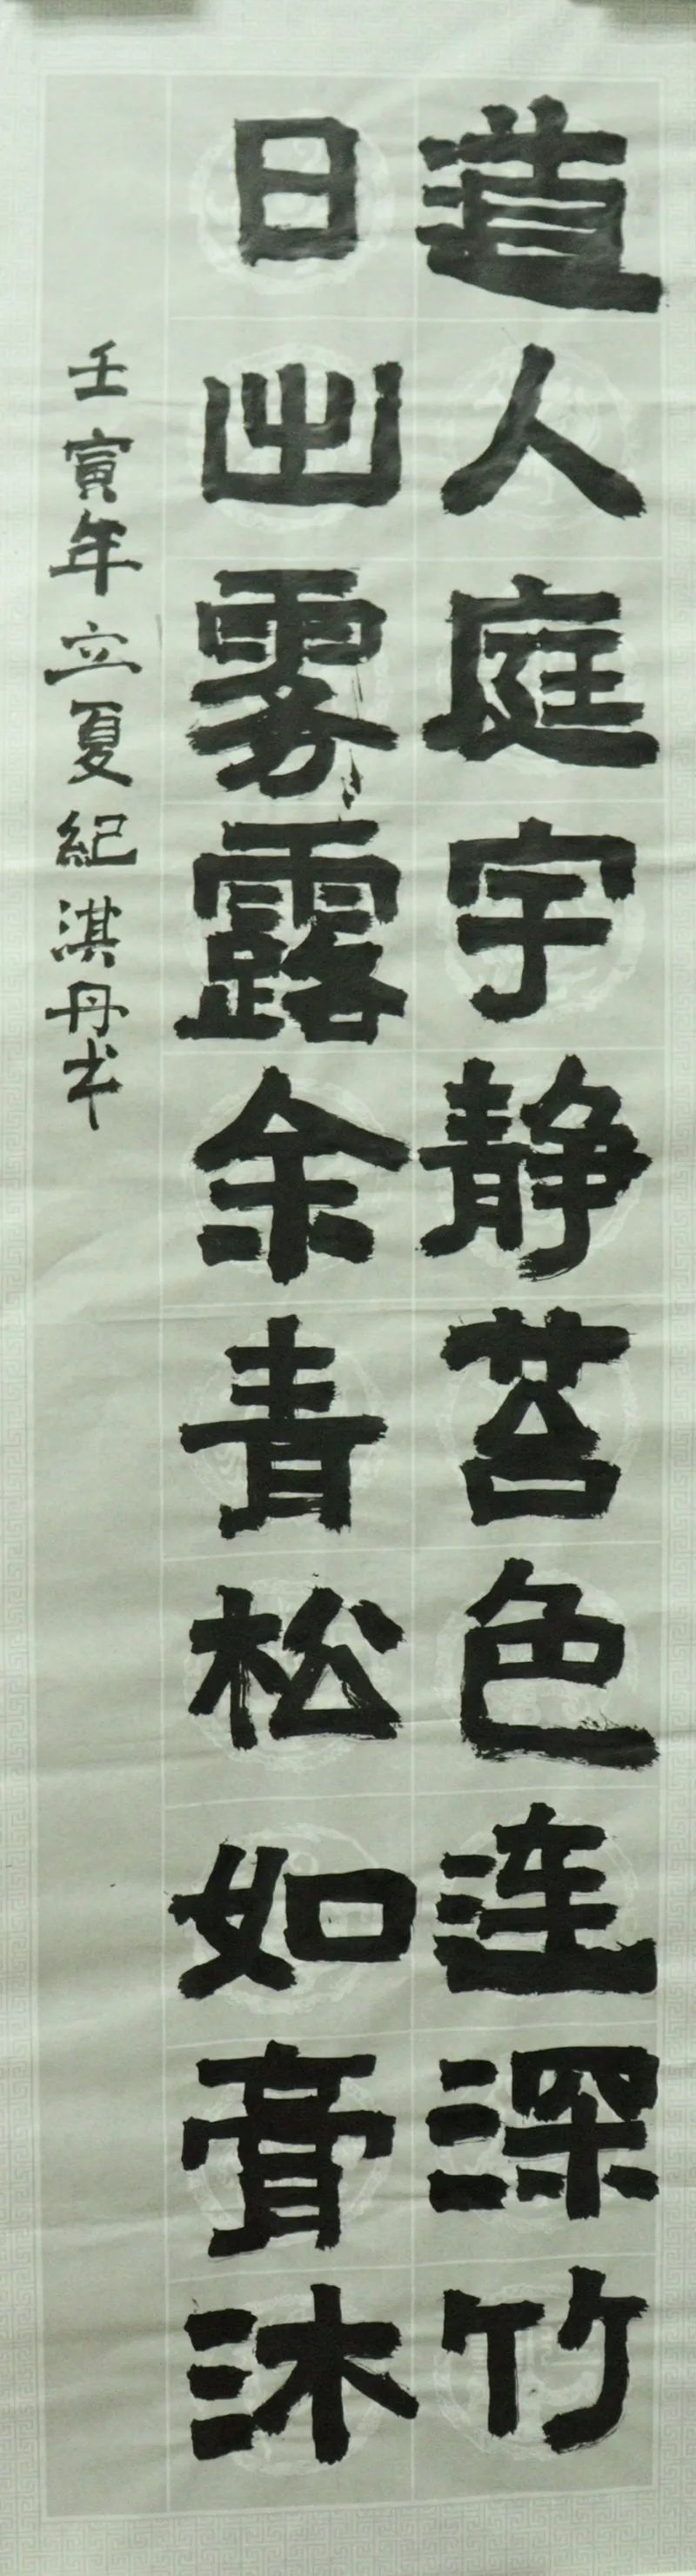 道人庭宇静苔色连深竹
日出雾露余青松如膏沐
壬寅年立夏紀淇丹书